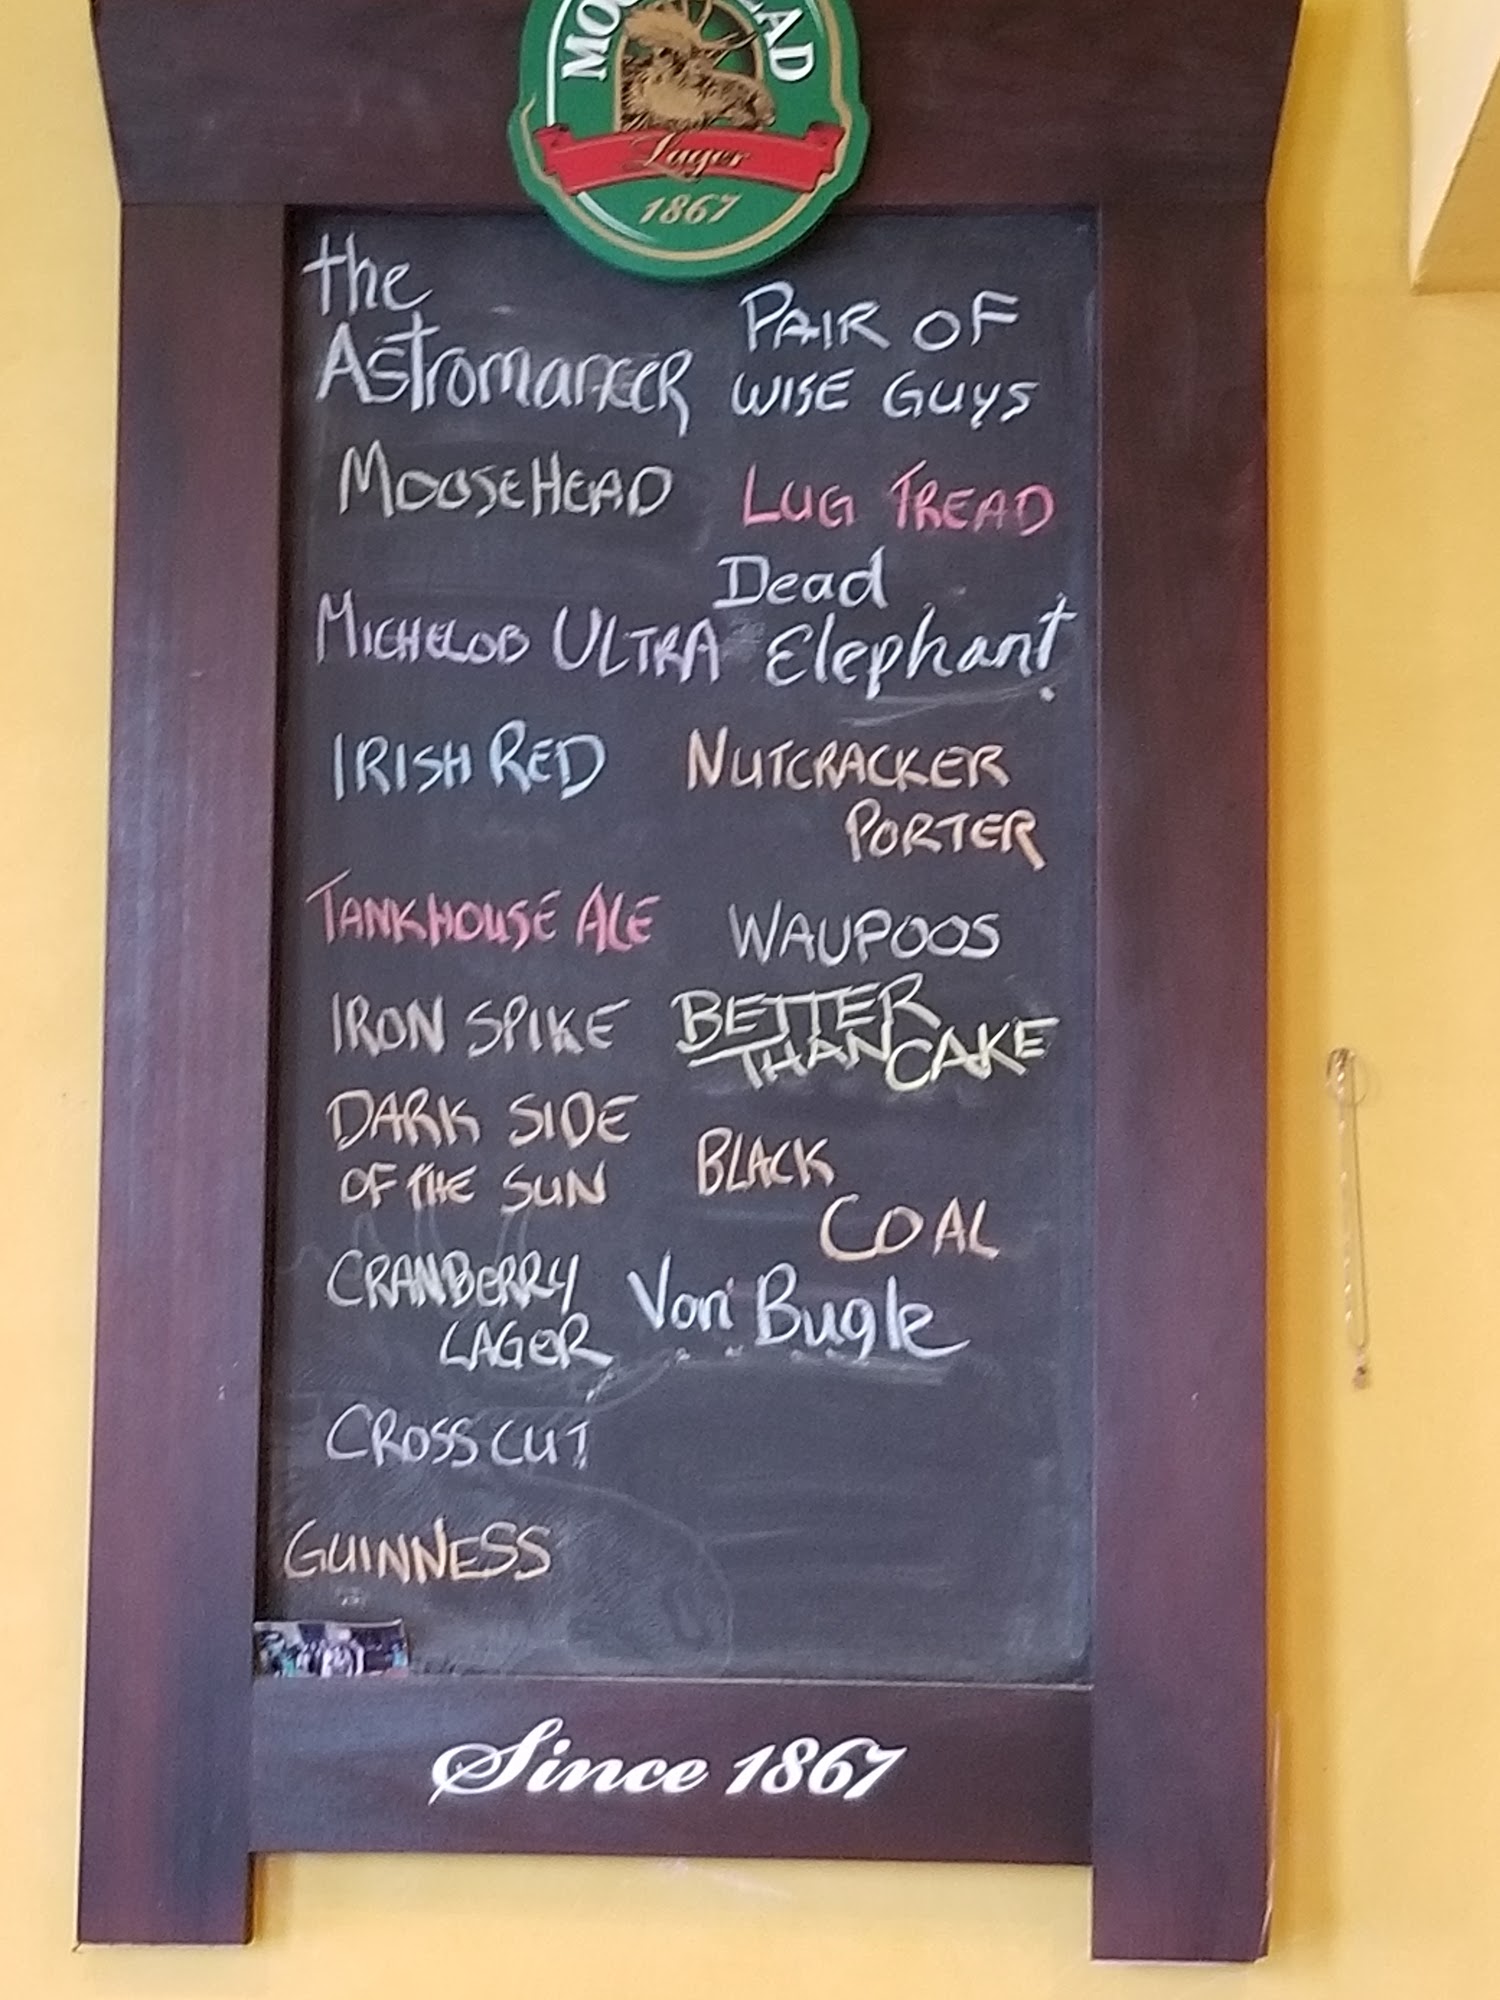 Lager
1867
the
Astromancer
MOOSEHEAD
MICHELOB ULTRA
IRISH RED
TANKHOUSE ALE
IRON SPIKE
DARK SIDE
OF THE SUN
CRANBERRY
LAGER
CROSSCUT
GUINNESS
PAIR OF
WISE GUYS
LUG TREAD
Dead
Elephant
NUTCRACKER
PORTER
WAUPOOS
BETTER
THAN CAKE
BLACK
COAL
Von Bugle
Since 1867